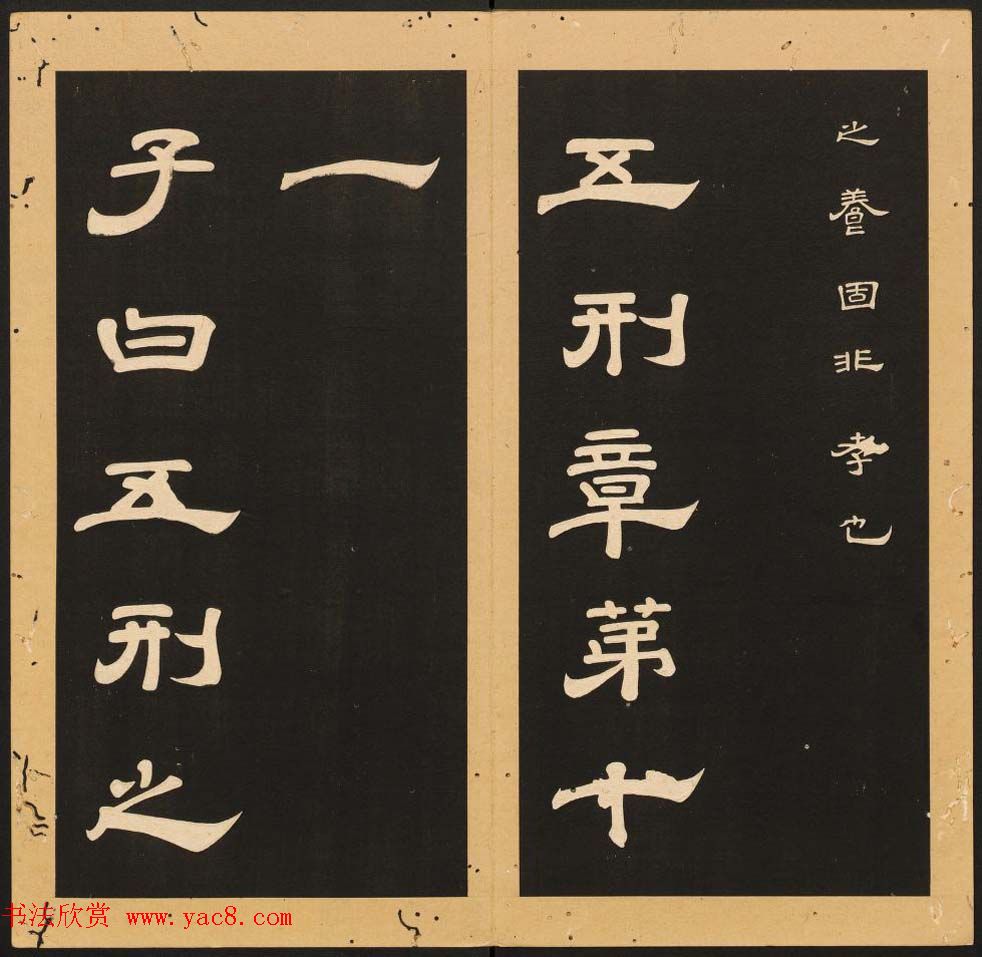 之養固非孝也
五刑章苐十
一
子曰五刑之
书法欣赏 www.yac8.com